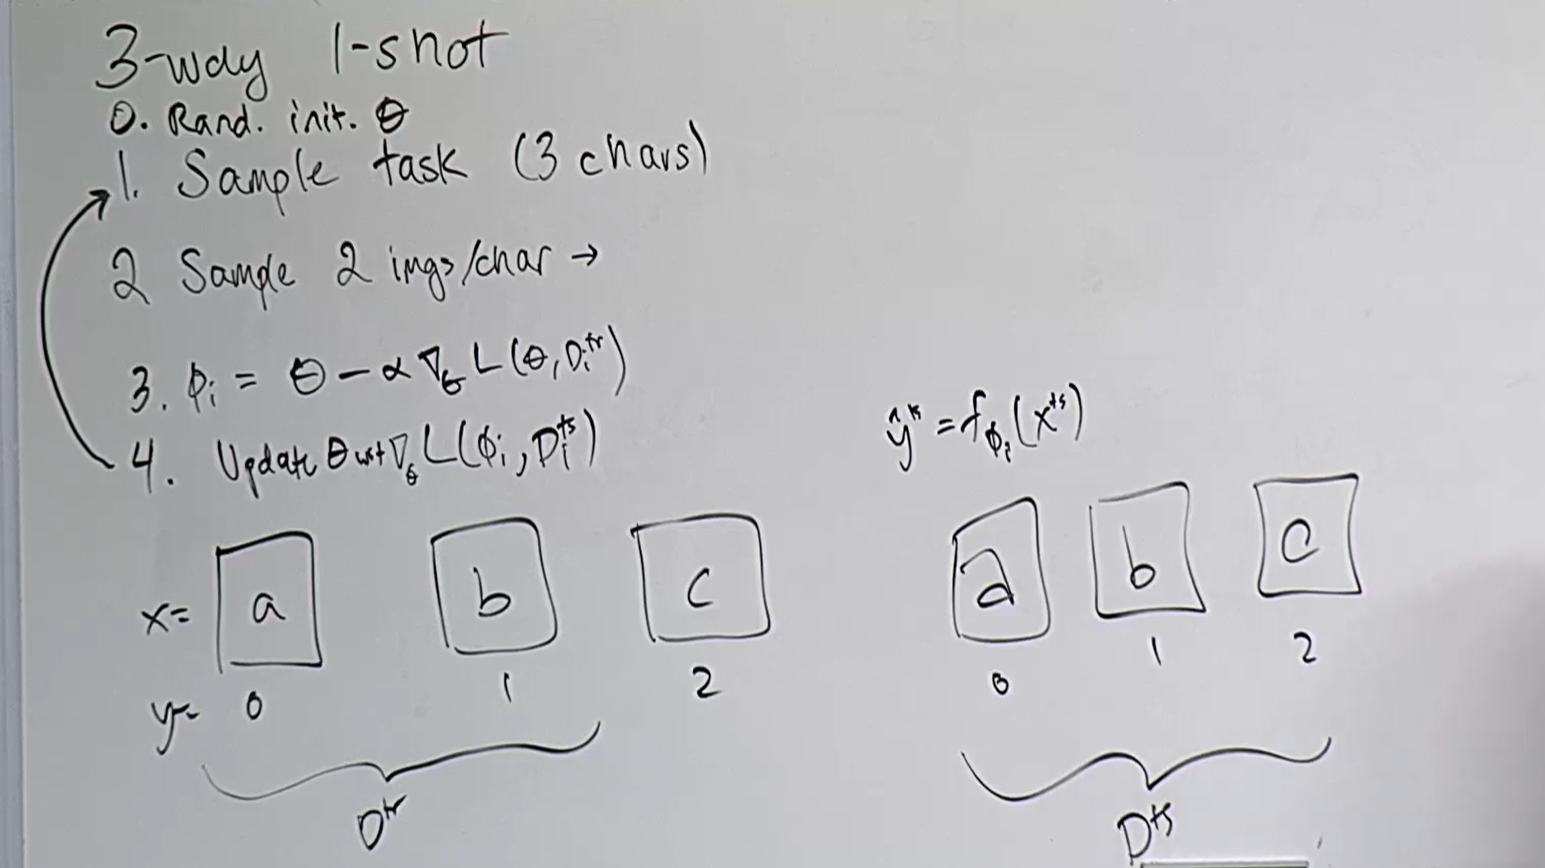 3-way 1-shot
0. Rand. init. θ
1. Sample task (3 chars)
2 Sample 2 imgs/char →
3. ϕᵢ = θ - α ∇_θ L(θ, Dᵢᵗʳ)
4. Update θ wrt ∇_θ L(ϕᵢ, Dᵢᵗˢ)
ŷᵗˢ = f_ϕᵢ(xᵗˢ)
x= a b c
y= 0 1 2
Dᵗʳ
a b c
0 1 2
Dᵗˢ